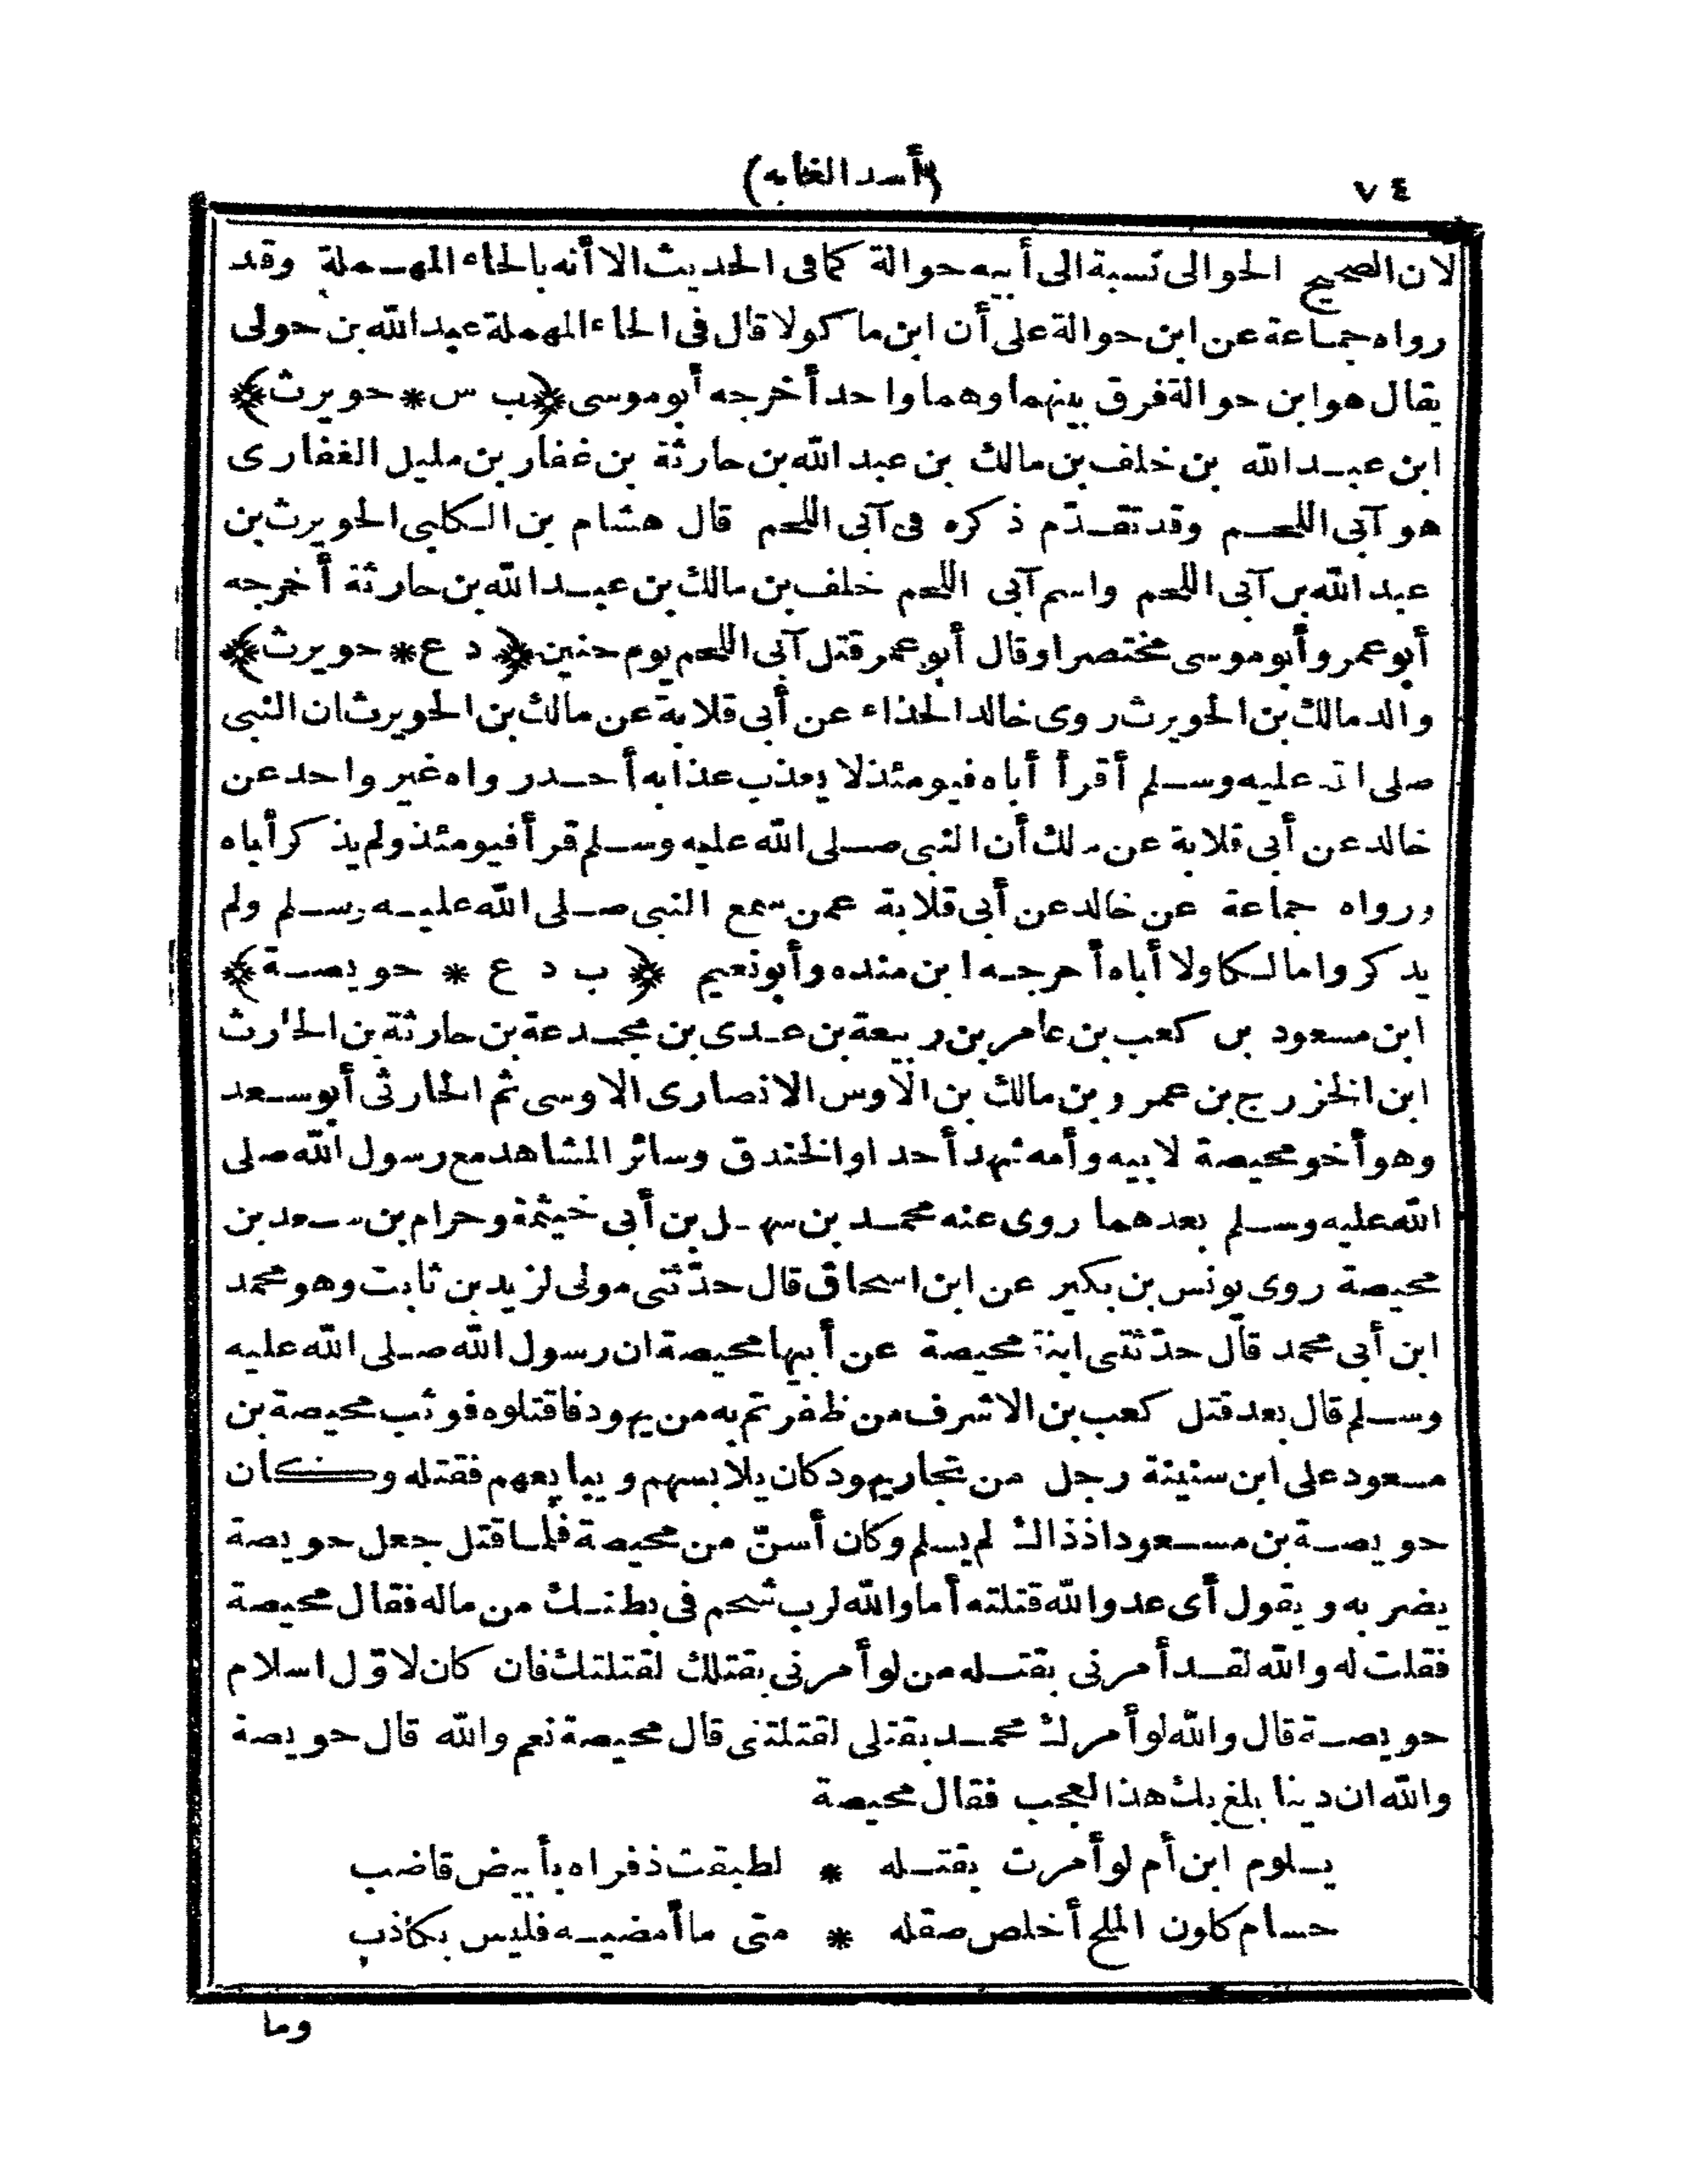 ٧٤
(أسد الغابه)
لان الصحيح الحوالى نسبة الى أبيه حوالة كما فى الحديث الا أنه بالحاء المهملة وقد
رواه جماعة عن ابن حوالة على أن ابن ماكولا قال فى الحاء المهملة عبد الله بن حولى
يقال هو ابن حوالة فرق بينهما وهما واحد أخرجه أبو موسى ﴿ب س * حويرث﴾
ابن عبد الله بن خلف بن مالك بن عبد الله بن حارثة بن غفار بن مليل الغفارى
هو آبى اللحم وقد تقدّم ذكره فى آبى اللحم قال هشام بن الكلبى الحويرث بن
عبد الله بن آبى اللحم واسم آبى اللحم خلف بن مالك بن عبد الله بن حارثة أخرجه
أبو عمر وأبو موسى مختصرا وقال أبو عمر قتل آبى اللحم يوم حنين ﴿د ع * حويرث﴾
والد مالك بن الحويرث روى خالد الحذاء عن أبى قلابة عن مالك بن الحويرث ان النبى
صلى الله عليه وسلم أقرأ أباه فيومئذ لا يعذب عذابه أحد رواه غير واحد عن
خالد عن أبى قلابة عن مالك أن النبى صلى الله عليه وسلم قرأ فيومئذ ولم يذكر أباه
ورواه جماعة عن خالد عن أبى قلابة عمن سمع النبى صلى الله عليه وسلم ولم
يذكروا مالكا ولا أباه أخرجه ابن منده وأبو نعيم ﴿ب د ع * حويصة﴾
ابن مسعود بن كعب بن عامر بن ربيعة بن عدى بن مجدعة بن حارثة بن الحارث
ابن الخزرج بن عمرو بن مالك بن الاوس الانصارى الاوسى ثم الحارثى أبو سعد
وهو أخو محيصة لابيه وأمه شهد أحدا والخندق وسائر المشاهد مع رسول الله صلى
الله عليه وسلم بعدهما روى عنه محمد بن سهل بن أبى خيثمة وحرام بن سعد بن
محيصة روى يونس بن بكير عن ابن اسحاق قال حدّثنى مولى لزيد بن ثابت وهو محمد
ابن أبى محمد قال حدّثتنى ابنة محيصة عن أبيها محيصة ان رسول الله صلى الله عليه
وسلم قال بعد قتل كعب بن الاشرف من ظفرتم به من يهود فاقتلوه فوثب محيصة بن
مسعود على ابن سنينة رجل من تجار يهود كان يلابسهم ويبايعهم فقتله وكان
حويصة بن مسعود اذ ذاك لم يسلم وكان أسنّ من محيصة فلما قتل جعل حويصة
يضربه ويقول أى عدو الله قتلته أما والله لرب شحم فى بطنك من ماله فقال محيصة
فقلت له والله لقد أمرنى بقتله من لو أمرنى بقتلك لقتلتك فان كان لاوّل اسلام
حويصة قال والله لو أمرك محمد بقتلى لقتلتنى قال محيصة نعم والله قال حويصة
والله ان دينا بلغ بك هذا لعجب فقال محيصة
يلوم ابن أم لو أمرت بقتله * لطبقت ذفراه بأبيض قاضب
حسام كلون الملح أخلص صقله * متى ما أمضيه فليس بكاذب
وما